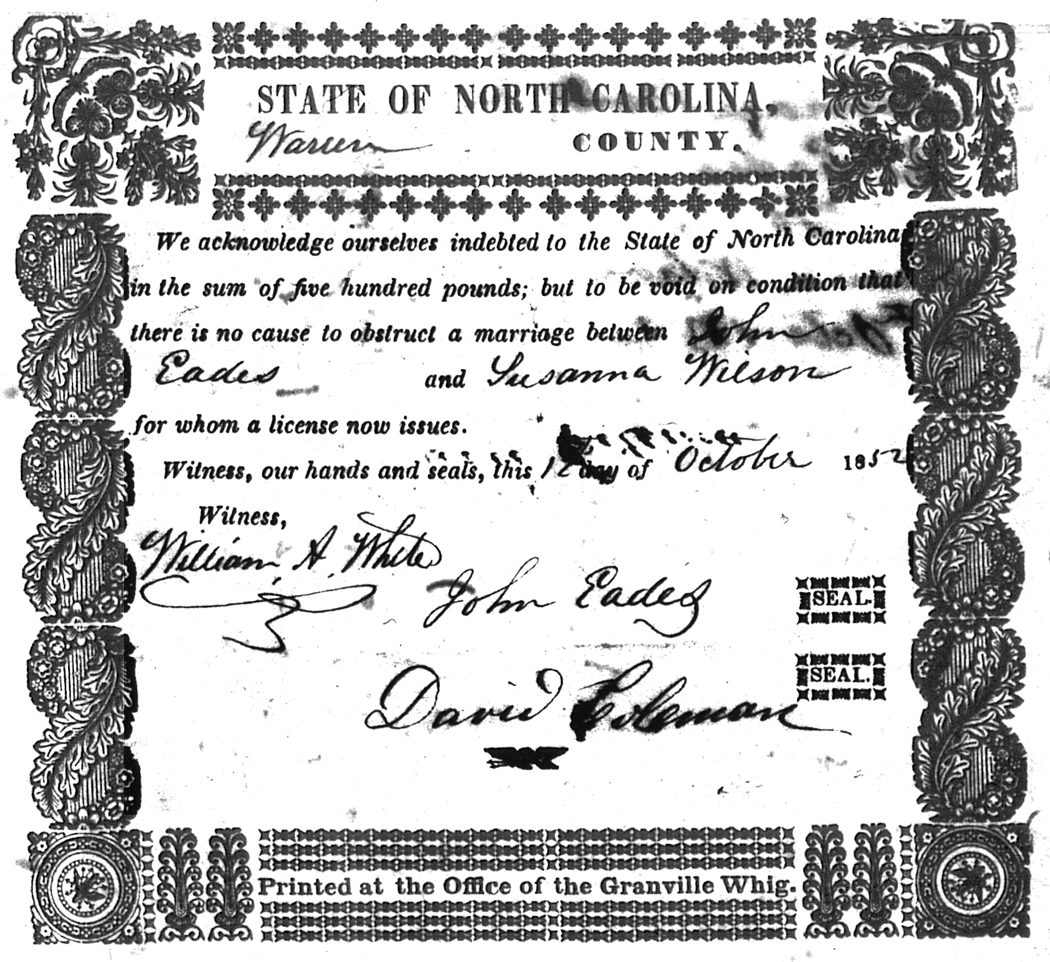 STATE OF NORTH CAROLINA,
Warren COUNTY.
We acknowledge ourselves indebted to the State of North Carolina
in the sum of five hundred pounds; but to be void on condition that
there is no cause to obstruct a marriage between John
Eades and Susanna Wilson
for whom a license now issues.
Witness, our hands and seals, this 12 day of October 1852
Witness,
William A. White
John Eades SEAL.
David Coleman SEAL.
Printed at the Office of the Granville Whig.